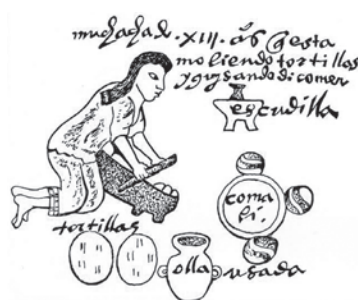 muchacha de .XIII. años Q esta
moliendo tortillas
y guysando di comer
escudilla
comal
tortillas
olla